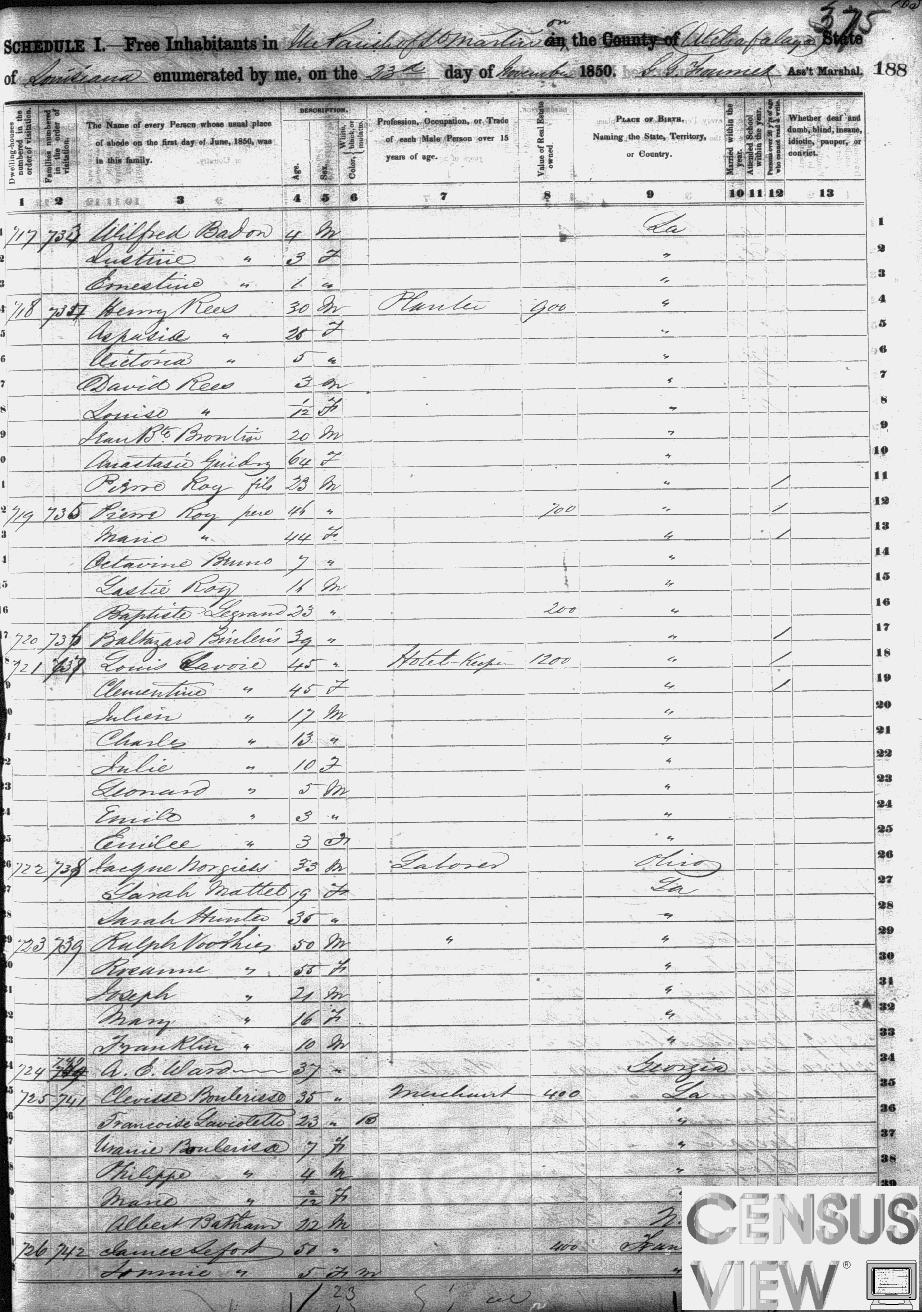 375
SCHEDULE I.—Free Inhabitants in the Parish of St Martin on in the County of Atchafalaya State
of Louisiana enumerated by me, on the 23d day of November 1850. Ass't Marshal. 188
Dwelling-houses numbered in the order of visitation.
Families numbered in the order of visitation.
The Name of every Person whose usual place of abode on the first day of June, 1850, was in this family.
DESCRIPTION.
Age.
Sex.
Color, White, black, or mulatto.
Profession, Occupation, or Trade of each Male Person over 15 years of age.
Value of Real Estate owned.
PLACE OF BIRTH. Naming the State, Territory, or Country.
Married within the year.
Attended School within the year.
Persons over 20 y'rs of age who cannot read & write.
Whether deaf and dumb, blind, insane, idiotic, pauper, or convict.
1 2 3 4 5 6 7 8 9 10 11 12 13
717 733 Wilfred Badon 4 M La 1
Justine " 3 F " 2
Ernestine " 1 " " 3
718 Henry Rees 30 M Planter 900 " 4
Aspasie " 25 F " 5
Victoria " 5 " " 6
David Rees 3 M " 7
Louise " 1/12 F " 8
Jean Bte 20 M " 9
Anastasie Guidry 64 F " 10
Pierre Roy fils 23 M " / 11
719 735 Pierre Roy pere 46 " 700 " / 12
Marie " 44 F " / 13
Octavine Bruno 7 " " 14
Lastie Roy 16 M " 15
Baptiste Legrand 23 " 200 " 16
720 Baltazard 39 " " / 17
721 Louis Lavoie 45 " Hotel-Keeper 1200 " / 18
Clementine " 45 F " / 19
Julien " 17 M " 20
Charles " 13 " " 21
Julie " 10 F " 22
Leonard " 5 M " 23
Emile " 3 " " 24
Emilee " 3 F " 25
722 738 Jacque Norgiess 33 M Laborer Ohio 26
Sarah Mattet 19 F La 27
Sarah Hunter 35 " " 28
723 739 Ralph Voorhies 50 M " " 29
Roseanne " 55 F " 30
Joseph " 21 M " 31
Mary " 16 F " 32
Franklin " 10 M " 33
724 740 A. E. Ward 37 " Georgia 34
725 741 Clevisse Boulerisse 35 " Merchant 400 La 35
Francoise Laviolette 23 " B " 36
Uranie Boulerisse 7 F " 37
Philippe " 4 M " 38
Marie " 2/12 F " 39
Albert Batham 22 M N.
726 742 James Lefort 50 " 400 Fran
" 5 F M "
23
CENSUS
VIEW®